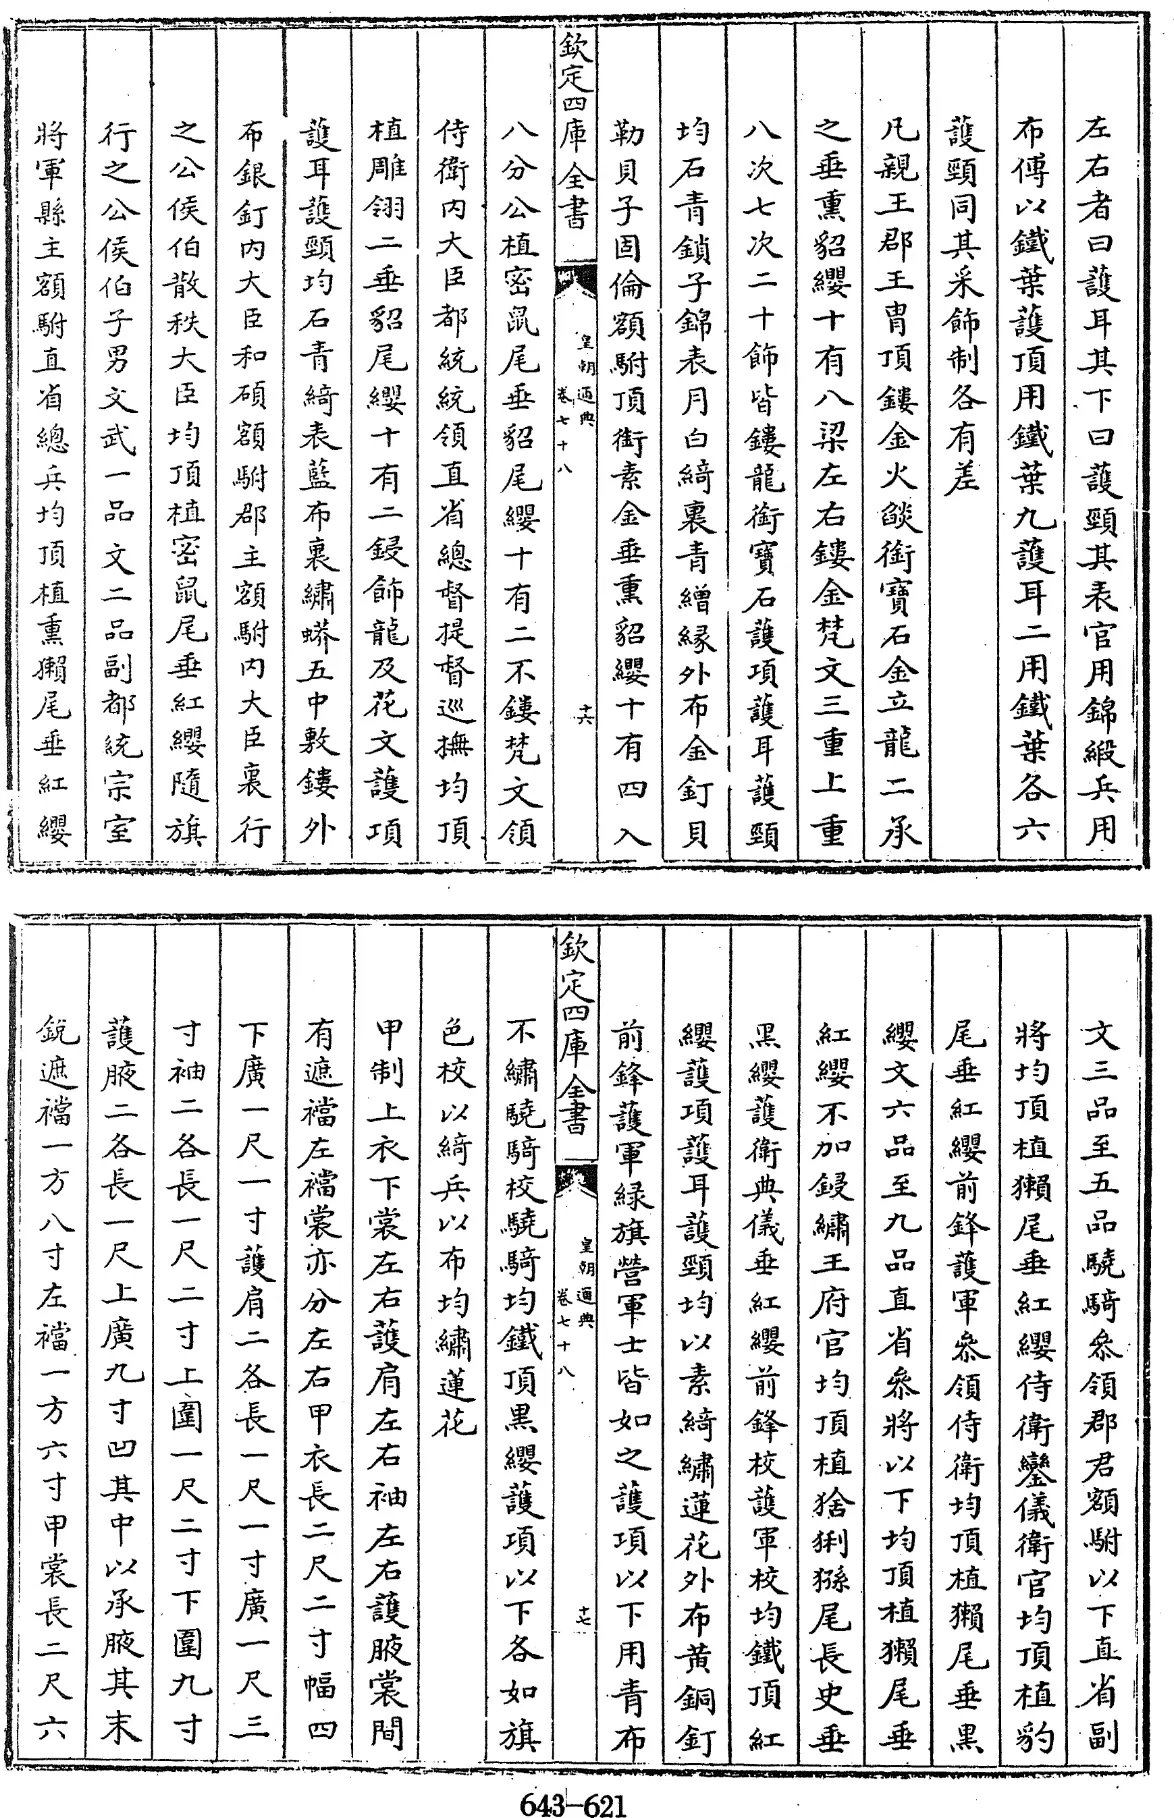 左右者曰護耳其下曰護頸其表官用錦緞兵用
布傅以鐵葉護頂用鐵葉九護耳二用鐵葉各六
護頸同其采飾制各有差
凡親王郡王胄頂鏤金火燄銜寶石金立龍二承
之垂熏貂纓十有八梁左右鏤金梵文三重上重
八次七次二十飾皆鏤龍銜寶石護項護耳護頸
均石青鎖子錦表月白綺裏青繒緣外布金釘貝
勒貝子固倫額駙頂銜素金垂熏貂纓十有四入
欽定四庫全書
皇朝通典
卷七十八
十六
八分公植密鼠尾垂貂尾纓十有二不鏤梵文領
侍衛內大臣都統統領直省總督提督巡撫均頂
植雕翎二垂貂尾纓十有二鋄飾龍及花文護項
護耳護頸均石青綺表藍布裏繡蟒五中敷鏤外
布銀釘內大臣和碩額駙郡主額駙內大臣裏行
之公侯伯散秩大臣均頂植密鼠尾垂紅纓隨旗
行之公侯伯子男文武一品文二品副都統宗室
將軍縣主額駙直省總兵均頂植熏獺尾垂紅纓
文三品至五品驍騎叅領郡君額駙以下直省副
將均頂植獺尾垂紅纓侍衛鑾儀衛官均頂植豹
尾垂紅纓前鋒護軍叅領侍衛均頂植獺尾垂黑
纓文六品至九品直省叅將以下均頂植獺尾垂
紅纓不加鋄繡王府官均頂植猞猁猻尾長史垂
黑纓護衛典儀垂紅纓前鋒校護軍校均鐵頂紅
纓護項護耳護頸均以素綺繡蓮花外布黃銅釘
前鋒護軍緑旗營軍士皆如之護項以下用青布
欽定四庫全書
皇朝通典
卷七十八
十七
不繡驍騎校驍騎均鐵頂黑纓護項以下各如旗
色校以綺兵以布均繡蓮花
甲制上衣下裳左右護肩左右袖左右護腋裳間
有遮襠左襠裳亦分左右甲衣長二尺二寸幅四
下廣一尺一寸護肩二各長一尺一寸廣一尺三
寸袖二各長一尺二寸上圍一尺二寸下圍九寸
護腋二各長一尺上廣九寸凹其中以承腋其末
銳遮襠一方八寸左襠一方六寸甲裳長二尺六
643-621